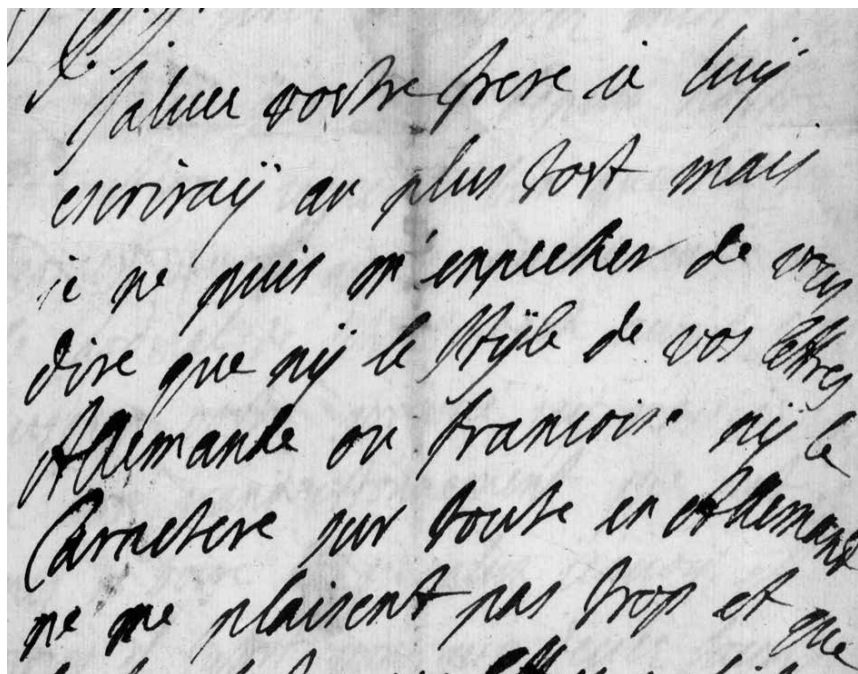 Saluer vostre frere ie luy
escriray au plus tost mais
ie ne puis m'enpecher de vous
dire que ny le style de vos lettres
Allemande ou francoise ny le
Caractere sur toute en Allemant
ne me plaisent pas trop et que